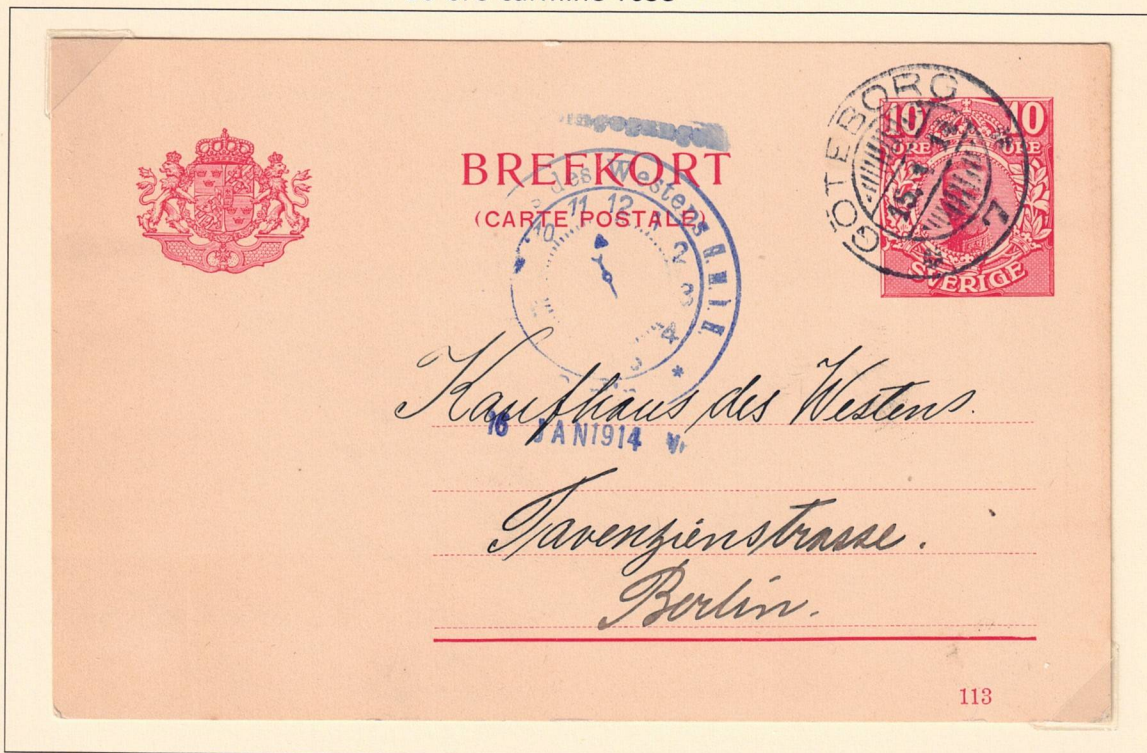 BREFKORT
(CARTE POSTALE)
10 10
ÖRE ÖRE
SVERIGE
GÖTEBORG
7
des Westens G.M.B.H.
10 11 12 1 2 3 4
16 JAN 1914
Kaufhaus des Westens.
Tavenzienstrasse.
Berlin.
113